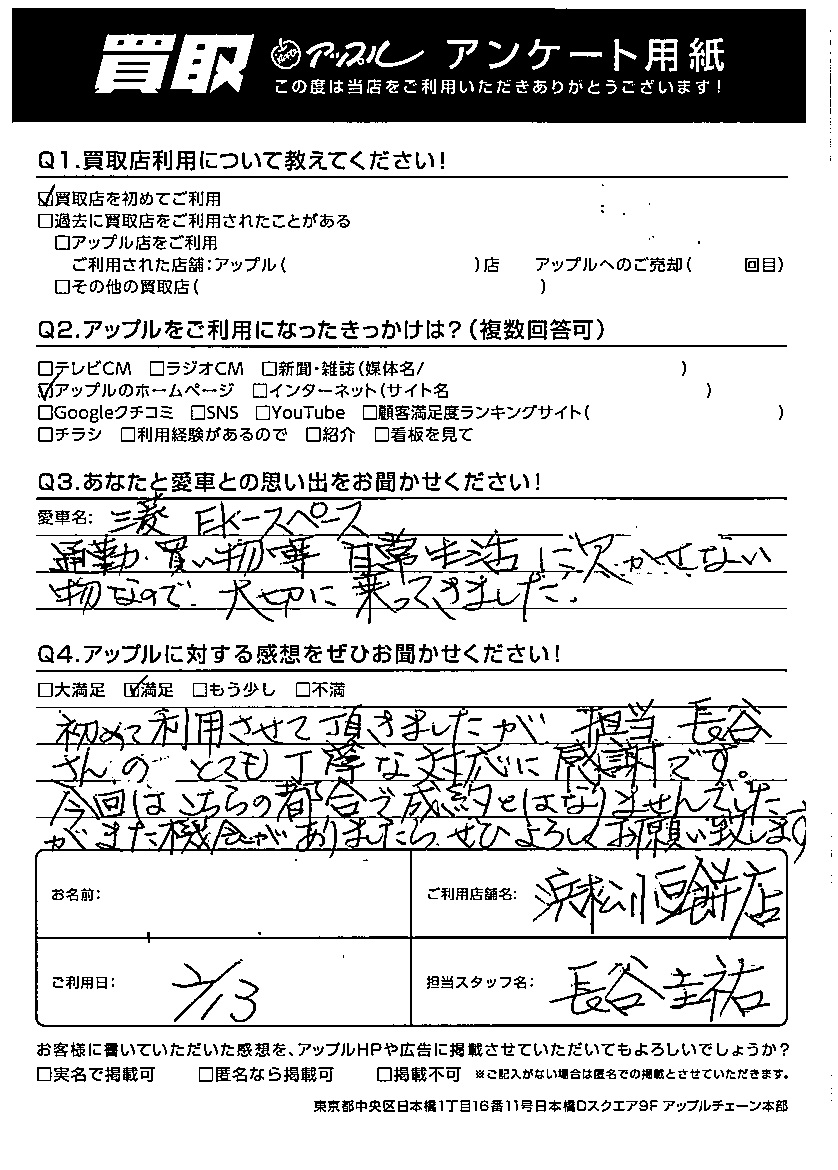 買取 アップル アンケート用紙
この度は当店をご利用いただきありがとうございます!
Q1.買取店利用について教えてください!
☑買取店を初めてご利用
□過去に買取店をご利用されたことがある
□アップル店をご利用
ご利用された店舗:アップル( )店 アップルへのご売却( 回目)
□その他の買取店( )
Q2.アップルをご利用になったきっかけは?(複数回答可)
□テレビCM □ラジオCM □新聞・雑誌(媒体名/ )
☑アップルのホームページ □インターネット(サイト名 )
□Googleクチコミ □SNS □YouTube □顧客満足度ランキングサイト( )
□チラシ □利用経験があるので □紹介 □看板を見て
Q3.あなたと愛車との思い出をお聞かせください!
愛車名: 三菱 EKースペース
通勤・買い物等 日常生活に欠かせない
物なので、大切に乗ってきました。
Q4.アップルに対する感想をぜひお聞かせください!
□大満足 ☑満足 □もう少し □不満
初めて利用させて頂きましたが 担当 長谷
さんの とても丁寧な対応に感謝です。
今回はこちらの都合で成約とはなりませんでした
がまた機会がありましたら、ぜひよろしくお願い致します
お名前: ご利用店舗名: 浜松小豆餅店
ご利用日: 2/13 担当スタッフ名: 長谷 圭祐
お客様に書いていただいた感想を、アップルHPや広告に掲載させていただいてもよろしいでしょうか?
□実名で掲載可 □匿名なら掲載可 □掲載不可 ※ご記入がない場合は匿名での掲載とさせていただきます。
東京都中央区日本橋1丁目16番11号日本橋Dスクエア9F アップルチェーン本部